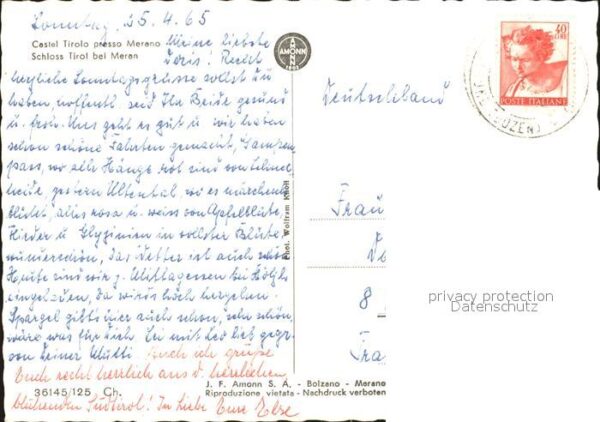 Sonntag, 25.4.65
Castel Tirolo presso Merano
Schloss Tirol bei Meran
Meine liebste
Doris! Recht
herzliche Sonntagsgrüsse sollst du
haben, hoffentl. seid Ihr Beide gesund
u. froh. Uns geht es gut u. wir haben
schon schöne Fahrten gemacht,
pass, wo alle Hänge rot sind von Schnee
heide, gestern Ultental, wo es märchenh.
blüht, alles rosa u. weiss von Apfelblüte,
Flieder u. Glyzinien in vollster Blüte
wunderschön, das Wetter ist auch schön
Heute sind wir z. Mittagessen bei
eingeladen, da wirds hoch hergehen.
Spargel gibts hier auch schon, sehr schön,
wäre was für Dich. Sei mit Leo lieb gegr.
von Deiner Mutti
Auch ich grüsse
Euch recht herzlich aus d. herrlichen,
blühenden Südtirol! In Liebe Eure Else
36145/125 Ch.
AMONN
Phot. Wolfram Knoll
J. F. Amonn S. A. - Bolzano - Merano
Riproduzione vietata - Nachdruck verboten
40
LIRE
POSTE ITALIANE
Deutschland
Frau
8
privacy protection
Datenschutz